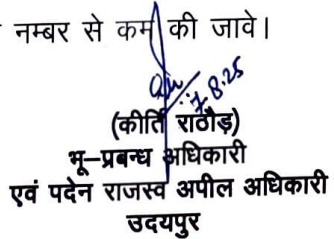 नम्बर से कम की जावे।
7.8.25
(कीर्ति राठौड़)
भू–प्रबन्ध अधिकारी
एवं पदेन राजस्व अपील अधिकारी
उदयपुर